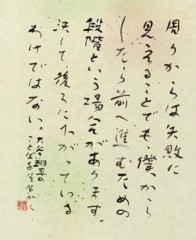 周りからは失敗に
見えることでも、僕から
したら前へ進むための
段階という場合があります。
決して後ろに下がっている
わけではない。大谷翔平の
ことば